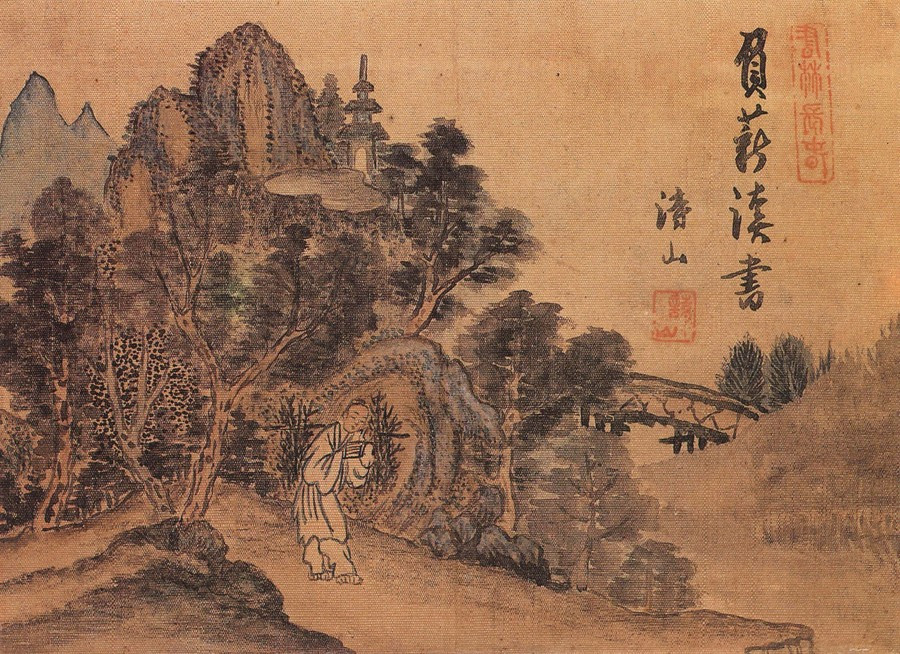 負薪讀書
詩山